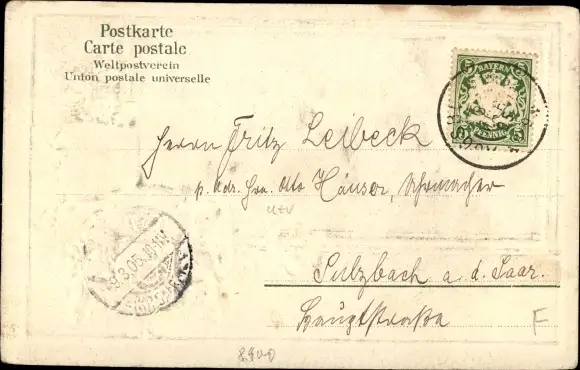 Postkarte
Carte postale
Weltpostverein
Union postale universelle
5 BAYERN 5
5 PFENNIG 5
Herrn Fritz Leibeck
p. Adr. Hrn. Otto Häuser, Schumacher
u+v
9.3.05.
Sulzbach a. d. Saar.
Hauptstraße
F
8900